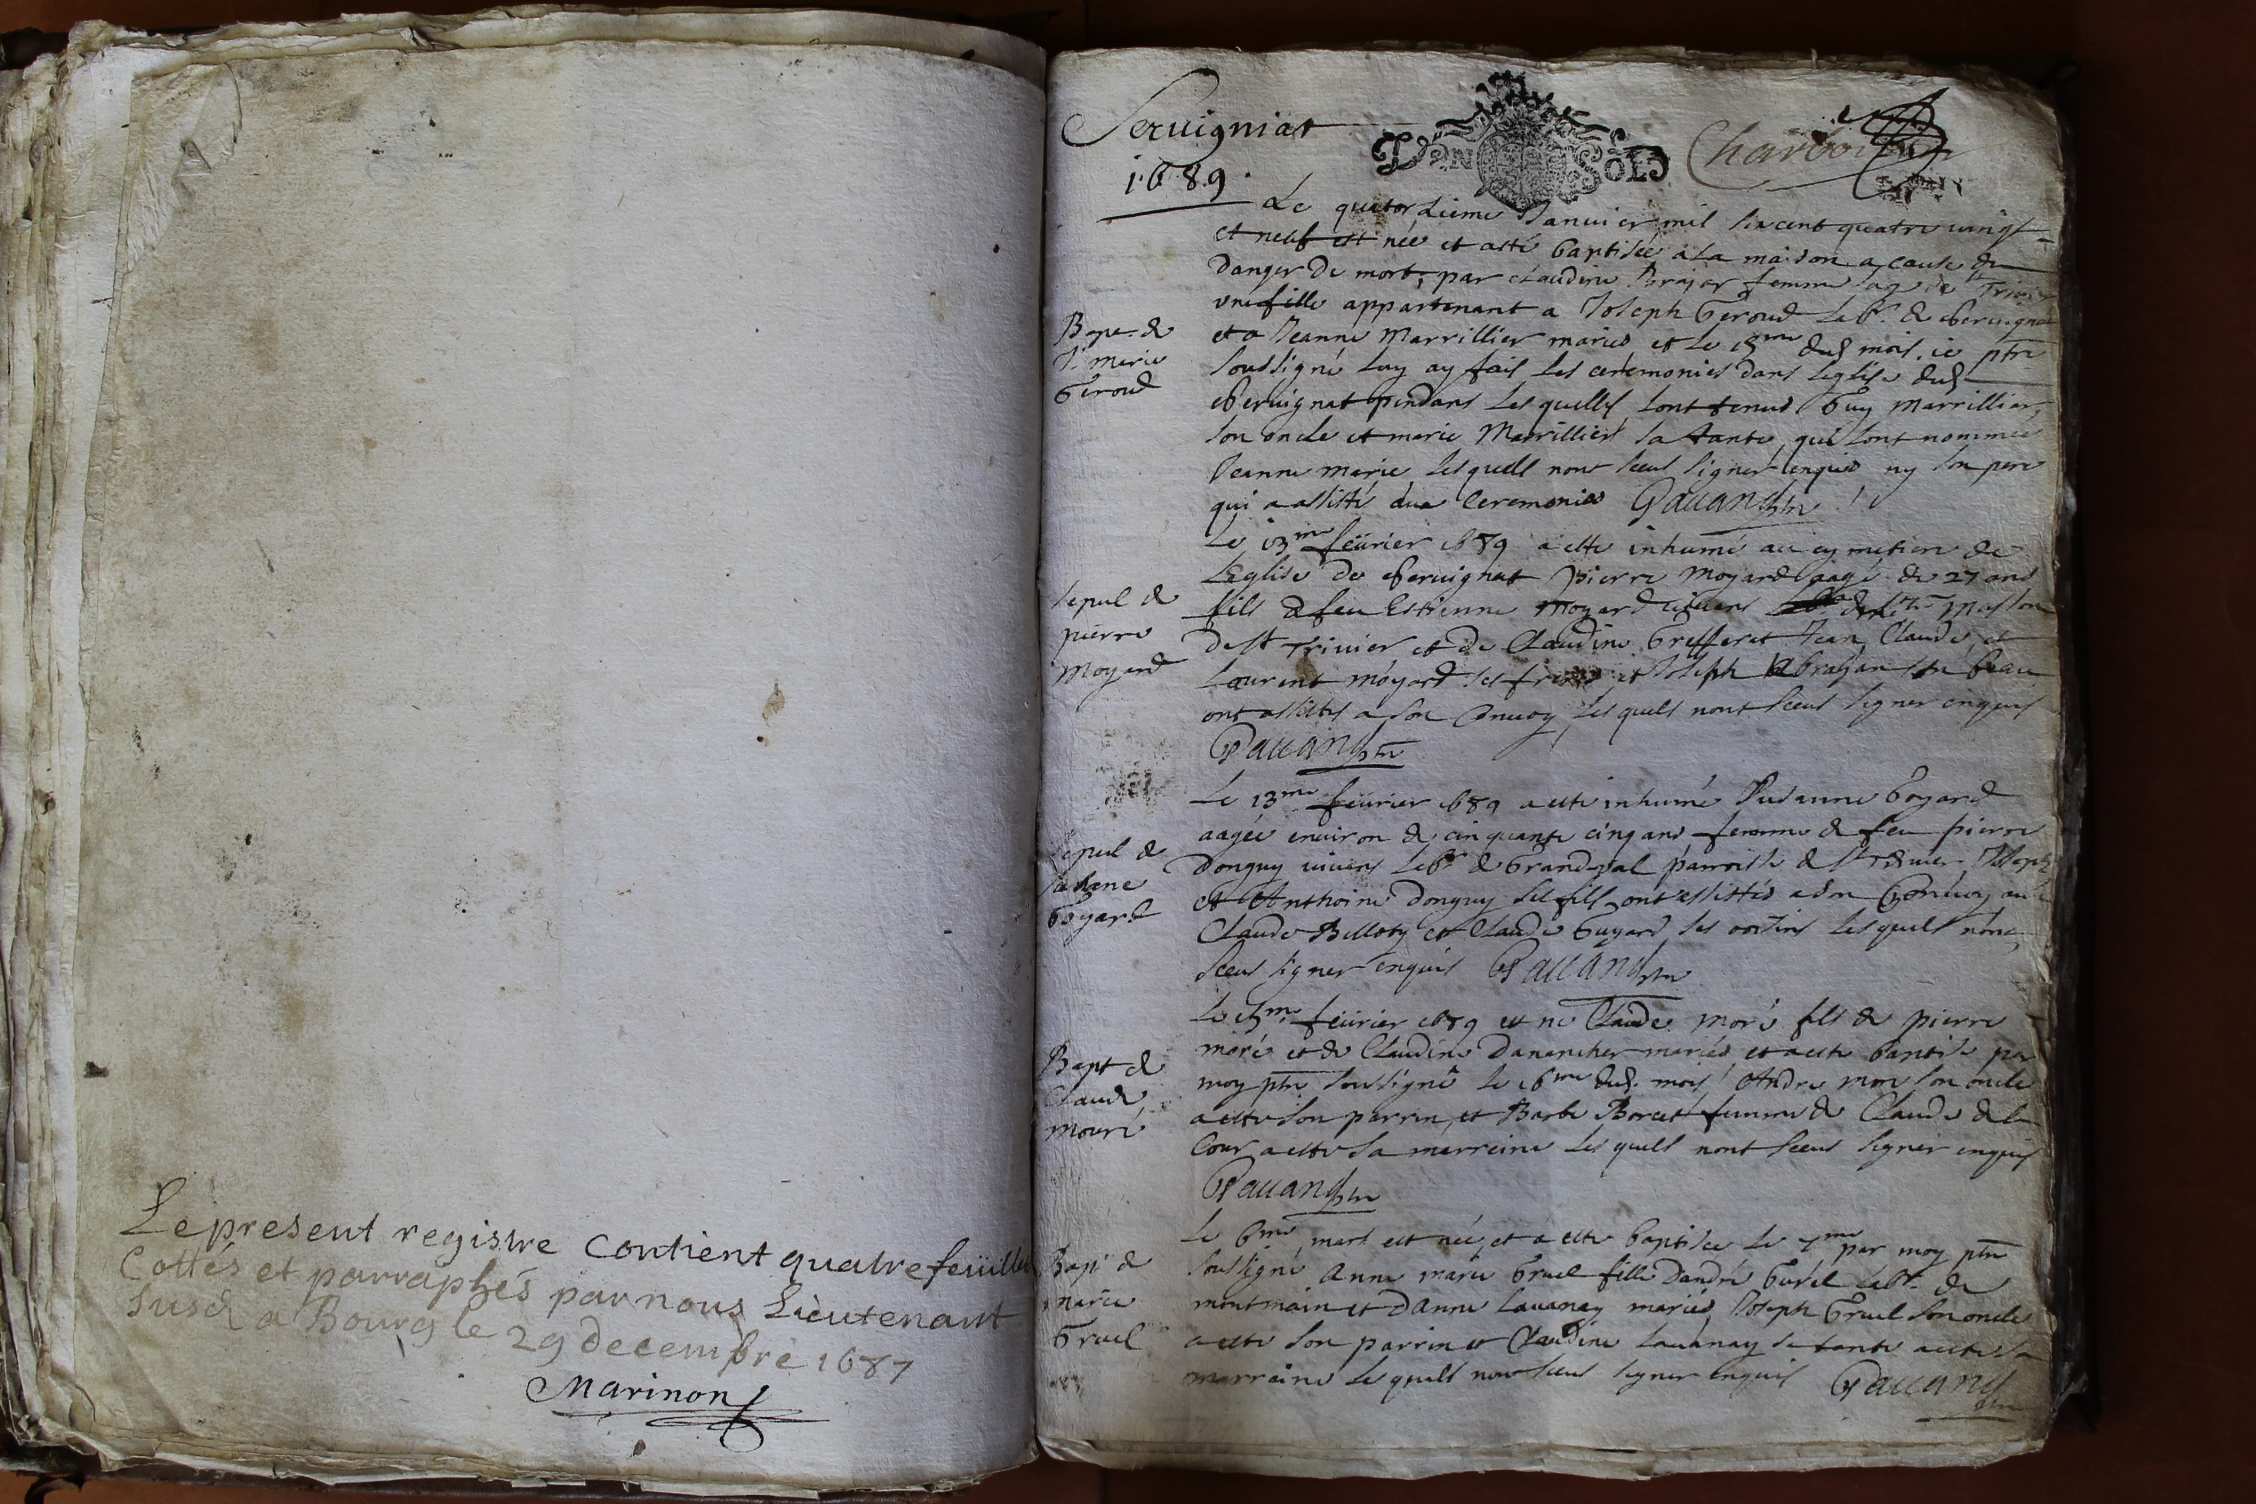 Le present registre contient quatre feüilles
Cottés et parraphés par nous Lieutenant
susd a Bourg le 29 decembre 1687
Marinon
Seruigniat
1689.
SOLS
Charbon
Le quatorzieme Januier mil six cent quatre uingt
et neuf est née et a esté baptisée a la maison a cause du
danger de mort, par Claudine femme sage de St Triuier
une fille appartenant a Joseph Geroud Labr. de Seruignat
et a Jeanne Marrillier mariés et le 15me dud mois, ie ptre
soussigné luy ay fait les ceremonies dans leglise dud
Seruignat pendans les quelles sont tenus Guy Marrillier
son oncle et marie Marrillier sa tante, qui sont nommée
Jeanne marie, lesquels nont sceus signer enquis ny son pere
qui a assisté aux ceremonies Pauand ptre
Bapt. de
Jne marie
Geroud
Le 13me feürier 1689 a esté inhumé au cymetiere de
Leglise de Seruignat pierre Moyard aagé de 27 ans
fils de feu Estienne Moyard uiuans
de St Triuier et de Claudine Jean, Claude, et
Laurent Moyard ses freres et Joseph son beau
ont assistés a son Conuoy, les quels nont sceus signer enquis
Pauand ptre
sepul de
pierre
Moyard
Le 13me feürier 1689 a esté inhumé Susanne Goyard
aagée enuiron de cinquante cinq ans femme de feu pierre
Donguy uiuans Labr de Grandual parroisse de St Triuier Joseph
et Anthoine Donguy ses fils ont assistés a son Conuoy
Claude Billoty et Claude Guyard ses uoisins lesquels nont
sceus signer enquis Pauand ptre
sepul de
Goyard
Le 15me feürier 1689 est né Claude Moré fils de pierre
moré et de Claudine Danancher mariés et a esté baptisé par
moy ptre soussigné le 16me dud. mois Andre more son oncle
a esté son parrin, et Barbe femme de Claude de la
Cour a esté sa marreine les quels nont sceus signer enquis
Pauand ptre
Bapt de
Claude
mouré
Le 6me mars est née, et a esté baptisée le 7me par moy ptre
soussigné Anne marie Gruel fille Dandré Gurel Labr. de
montmain et Danne Lauanay mariés, Joseph Gruel son oncle
a esté son parrin et Claudine Lauanay sa tante a esté sa
marraine les quels nont sceus signer enquis Pauand
ptre
Bapt de
marie
Gruel